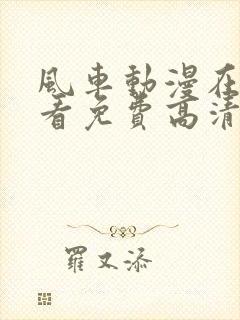 風車動漫在
看免費高清
羅又添